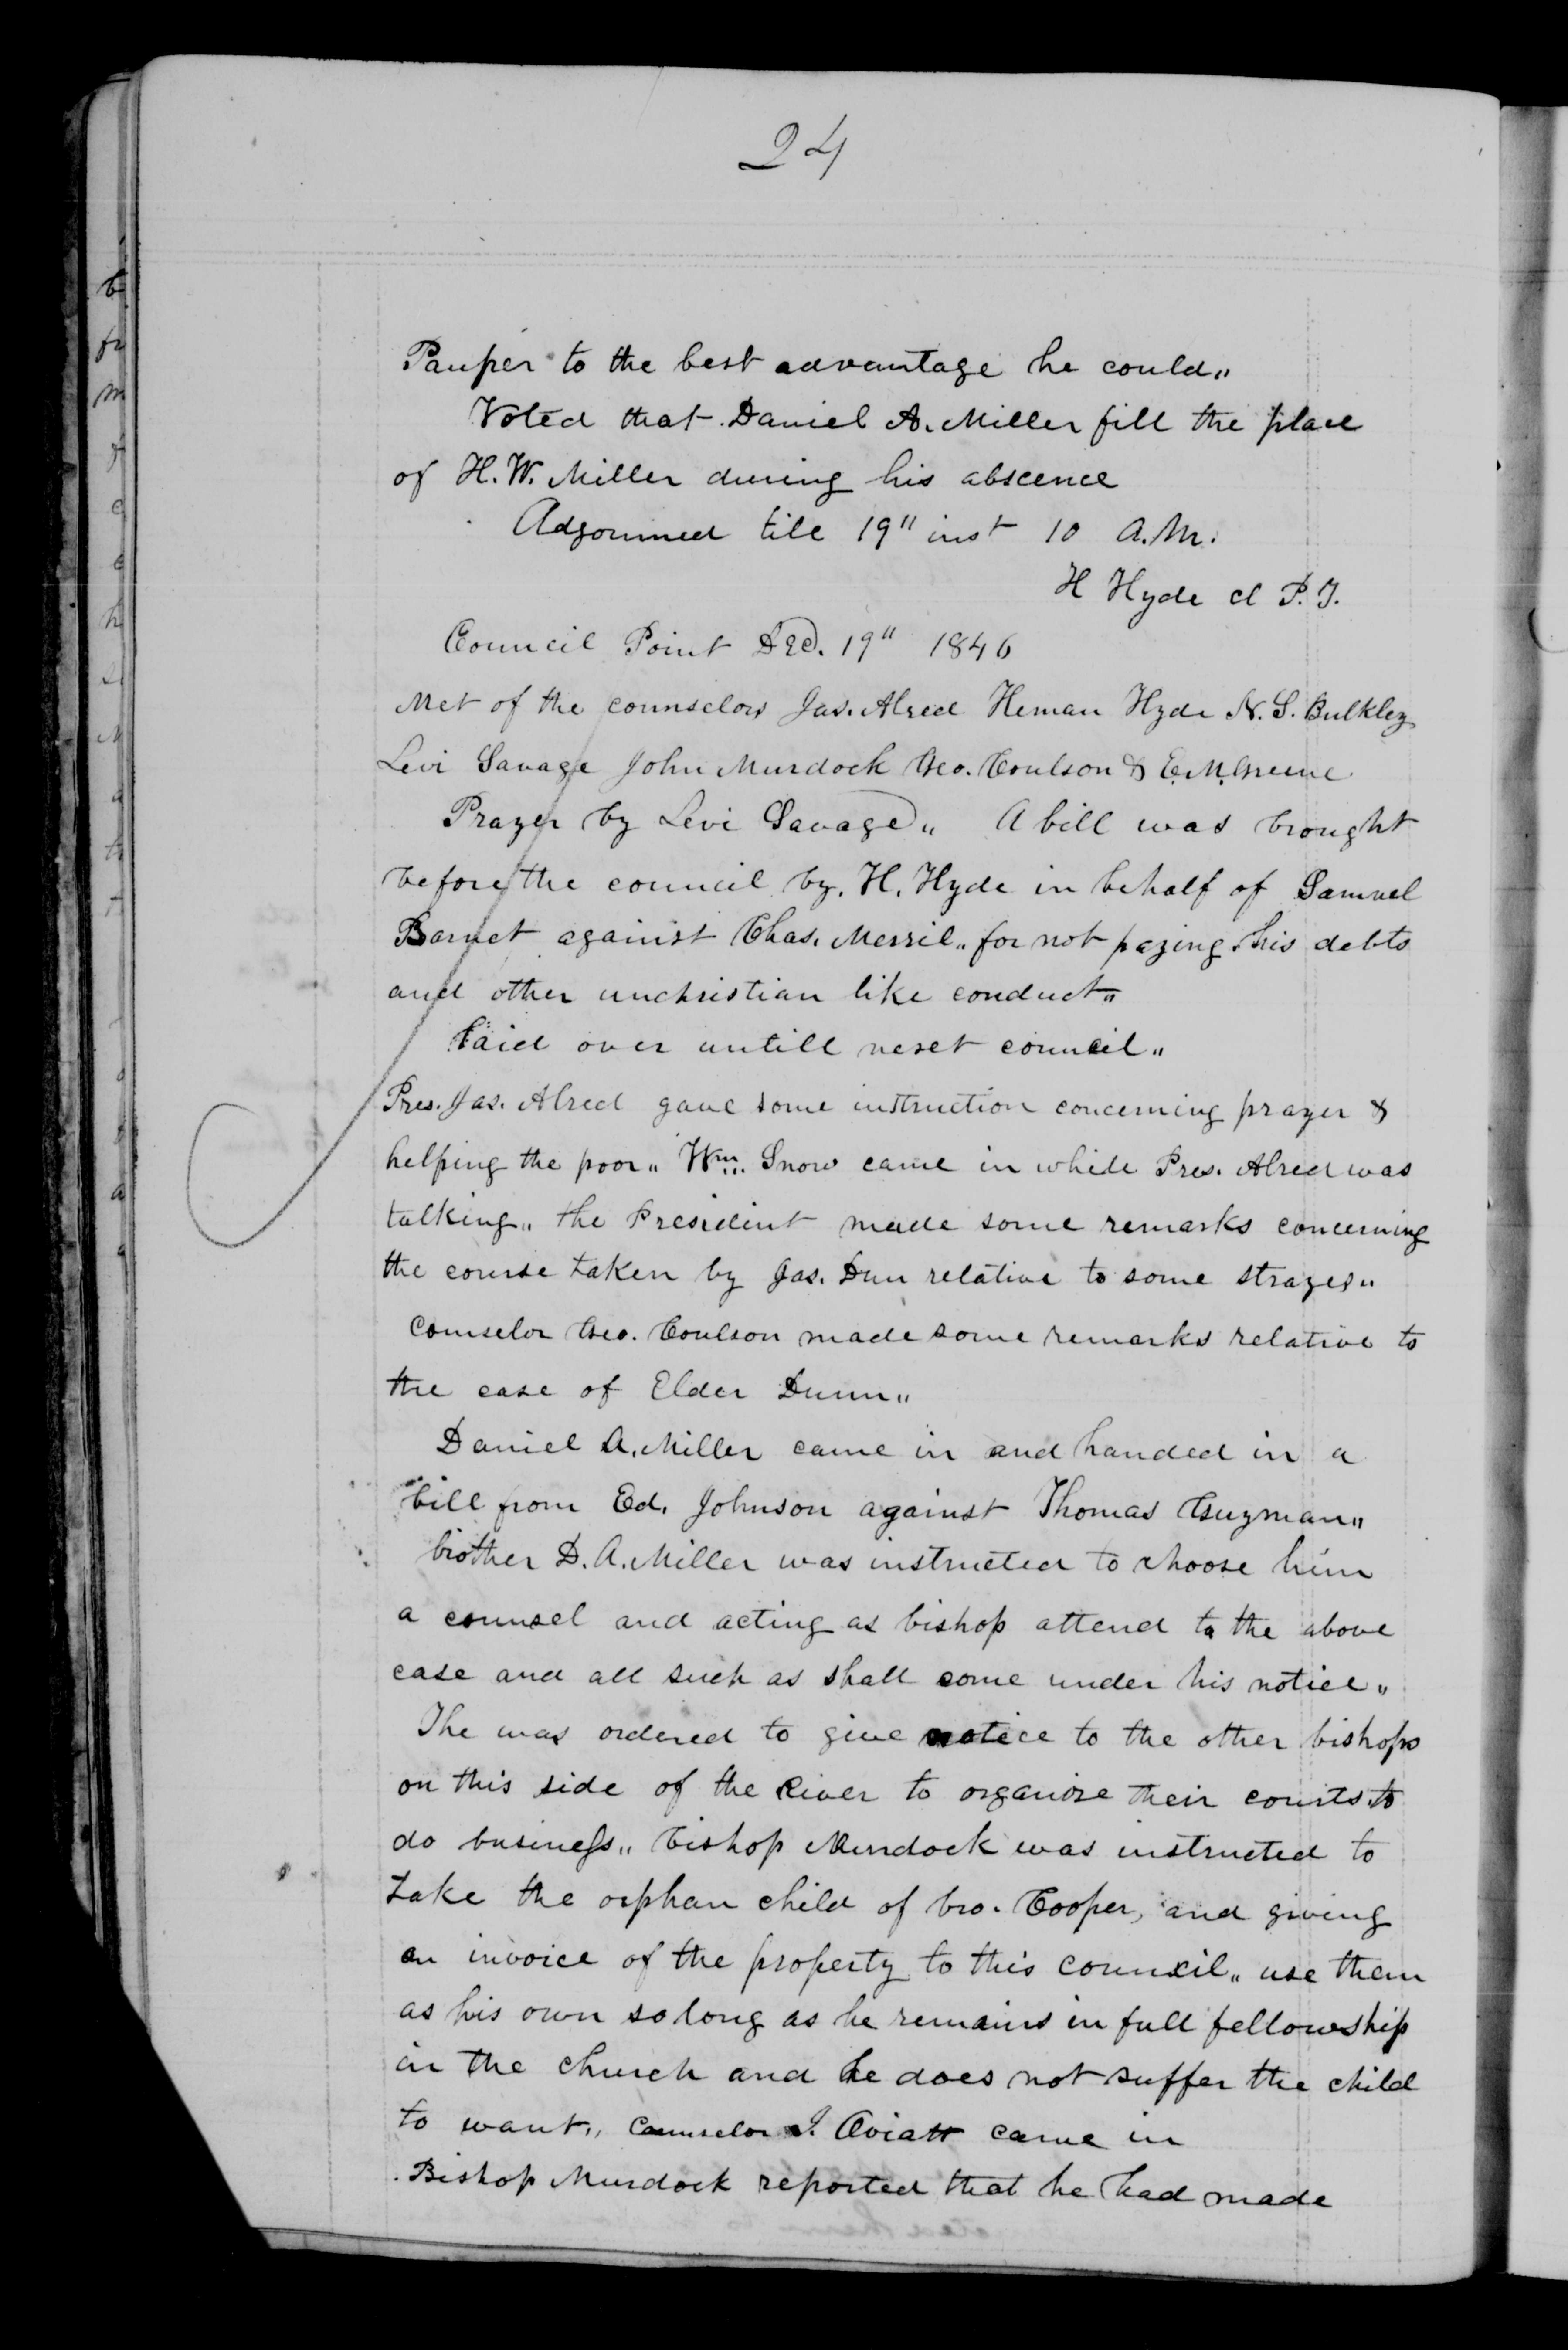 24
Pauper to the best advantage he could„
Voted that Daniel A. Miller fill the place
of H. W. Miller during his abscence
Adjourned till 19" inst 10 A.M.
H Hyde cl P. T.
Council Point Dec. 19" 1846
Met of the counselors Jas. Alred Heman Hyde N. S. Bulkley
Levi Savage John Murdock Geo. Coulson & E. M. Greene
Prayer by Levi Savage„ A bill was brought
before the council by. H. Hyde in behalf of Samuel
Barnet against Chas. Merril„ for not paying his debts
and other unchristian like conduct„
Laid over untill next council„
Pres. Jas. Alred gave some instruction concerning prayer &
helping the poor„ Wm. Snow came in while Pres. Alred was
talking„ the President made some remarks concerning
the course taken by Jas. Dun relative to some strayes„
Counselor Geo. Coulson made some remarks relative to
the case of Elder Dunn„
Daniel A. Miller came in and handed in a
bill from Ed. Johnson against Thomas Guyman„
brother D. A. Miller was instructed to choose him
a counsel and acting as bishop attend to the above
case and all such as shall come under his notice„
The was ordered to give notice to the other bishops
on this side of the River to organize their courts to
do business„ bishop Murdock was instructed to
take the orphan child of bro. Cooper, and giving
an invoice of the property to this council„ use them
as his own so long as he remains in full fellowship
in the church and he does not suffer the child
to want„ Counselor I. Aviatt came in
Bishop Murdock reported that he had made